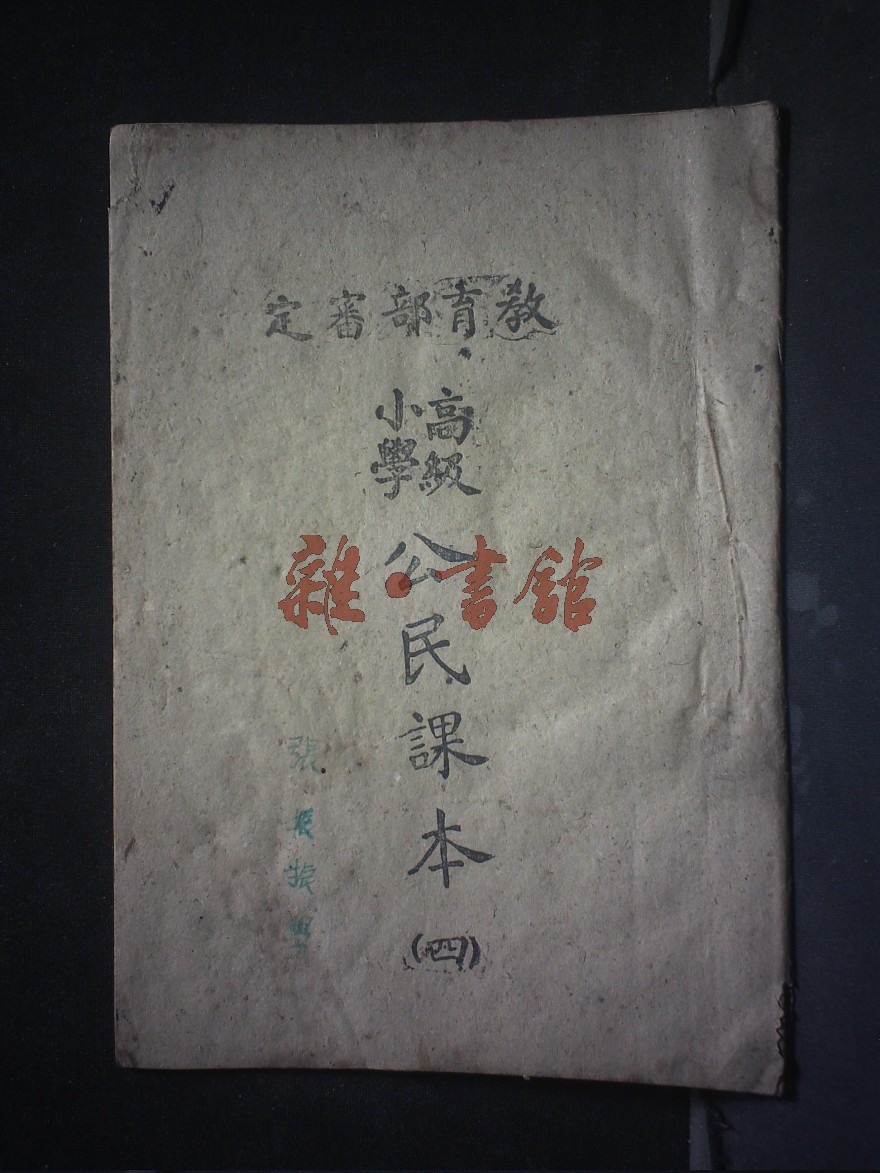 教育部審定
高級
小學
公民課本
(四)
雜·書館
張